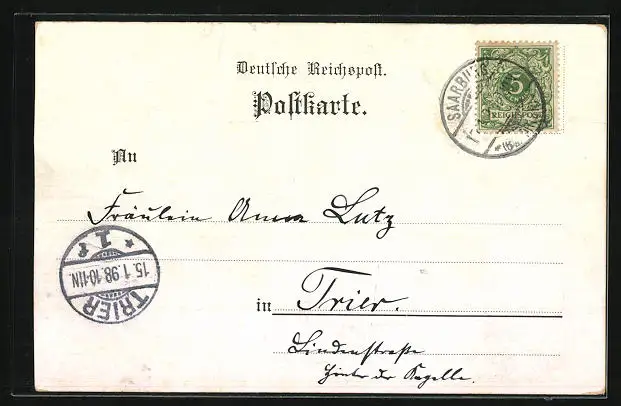 Deutsche Reichspost.
Postkarte.
SAARBURG
5
REICHSPOST
An
Fräulein Anna Lutz
TRIER
15.1.98.10-11N.
1 r
in Trier.
Lindenstraße
hinter der Kapelle.